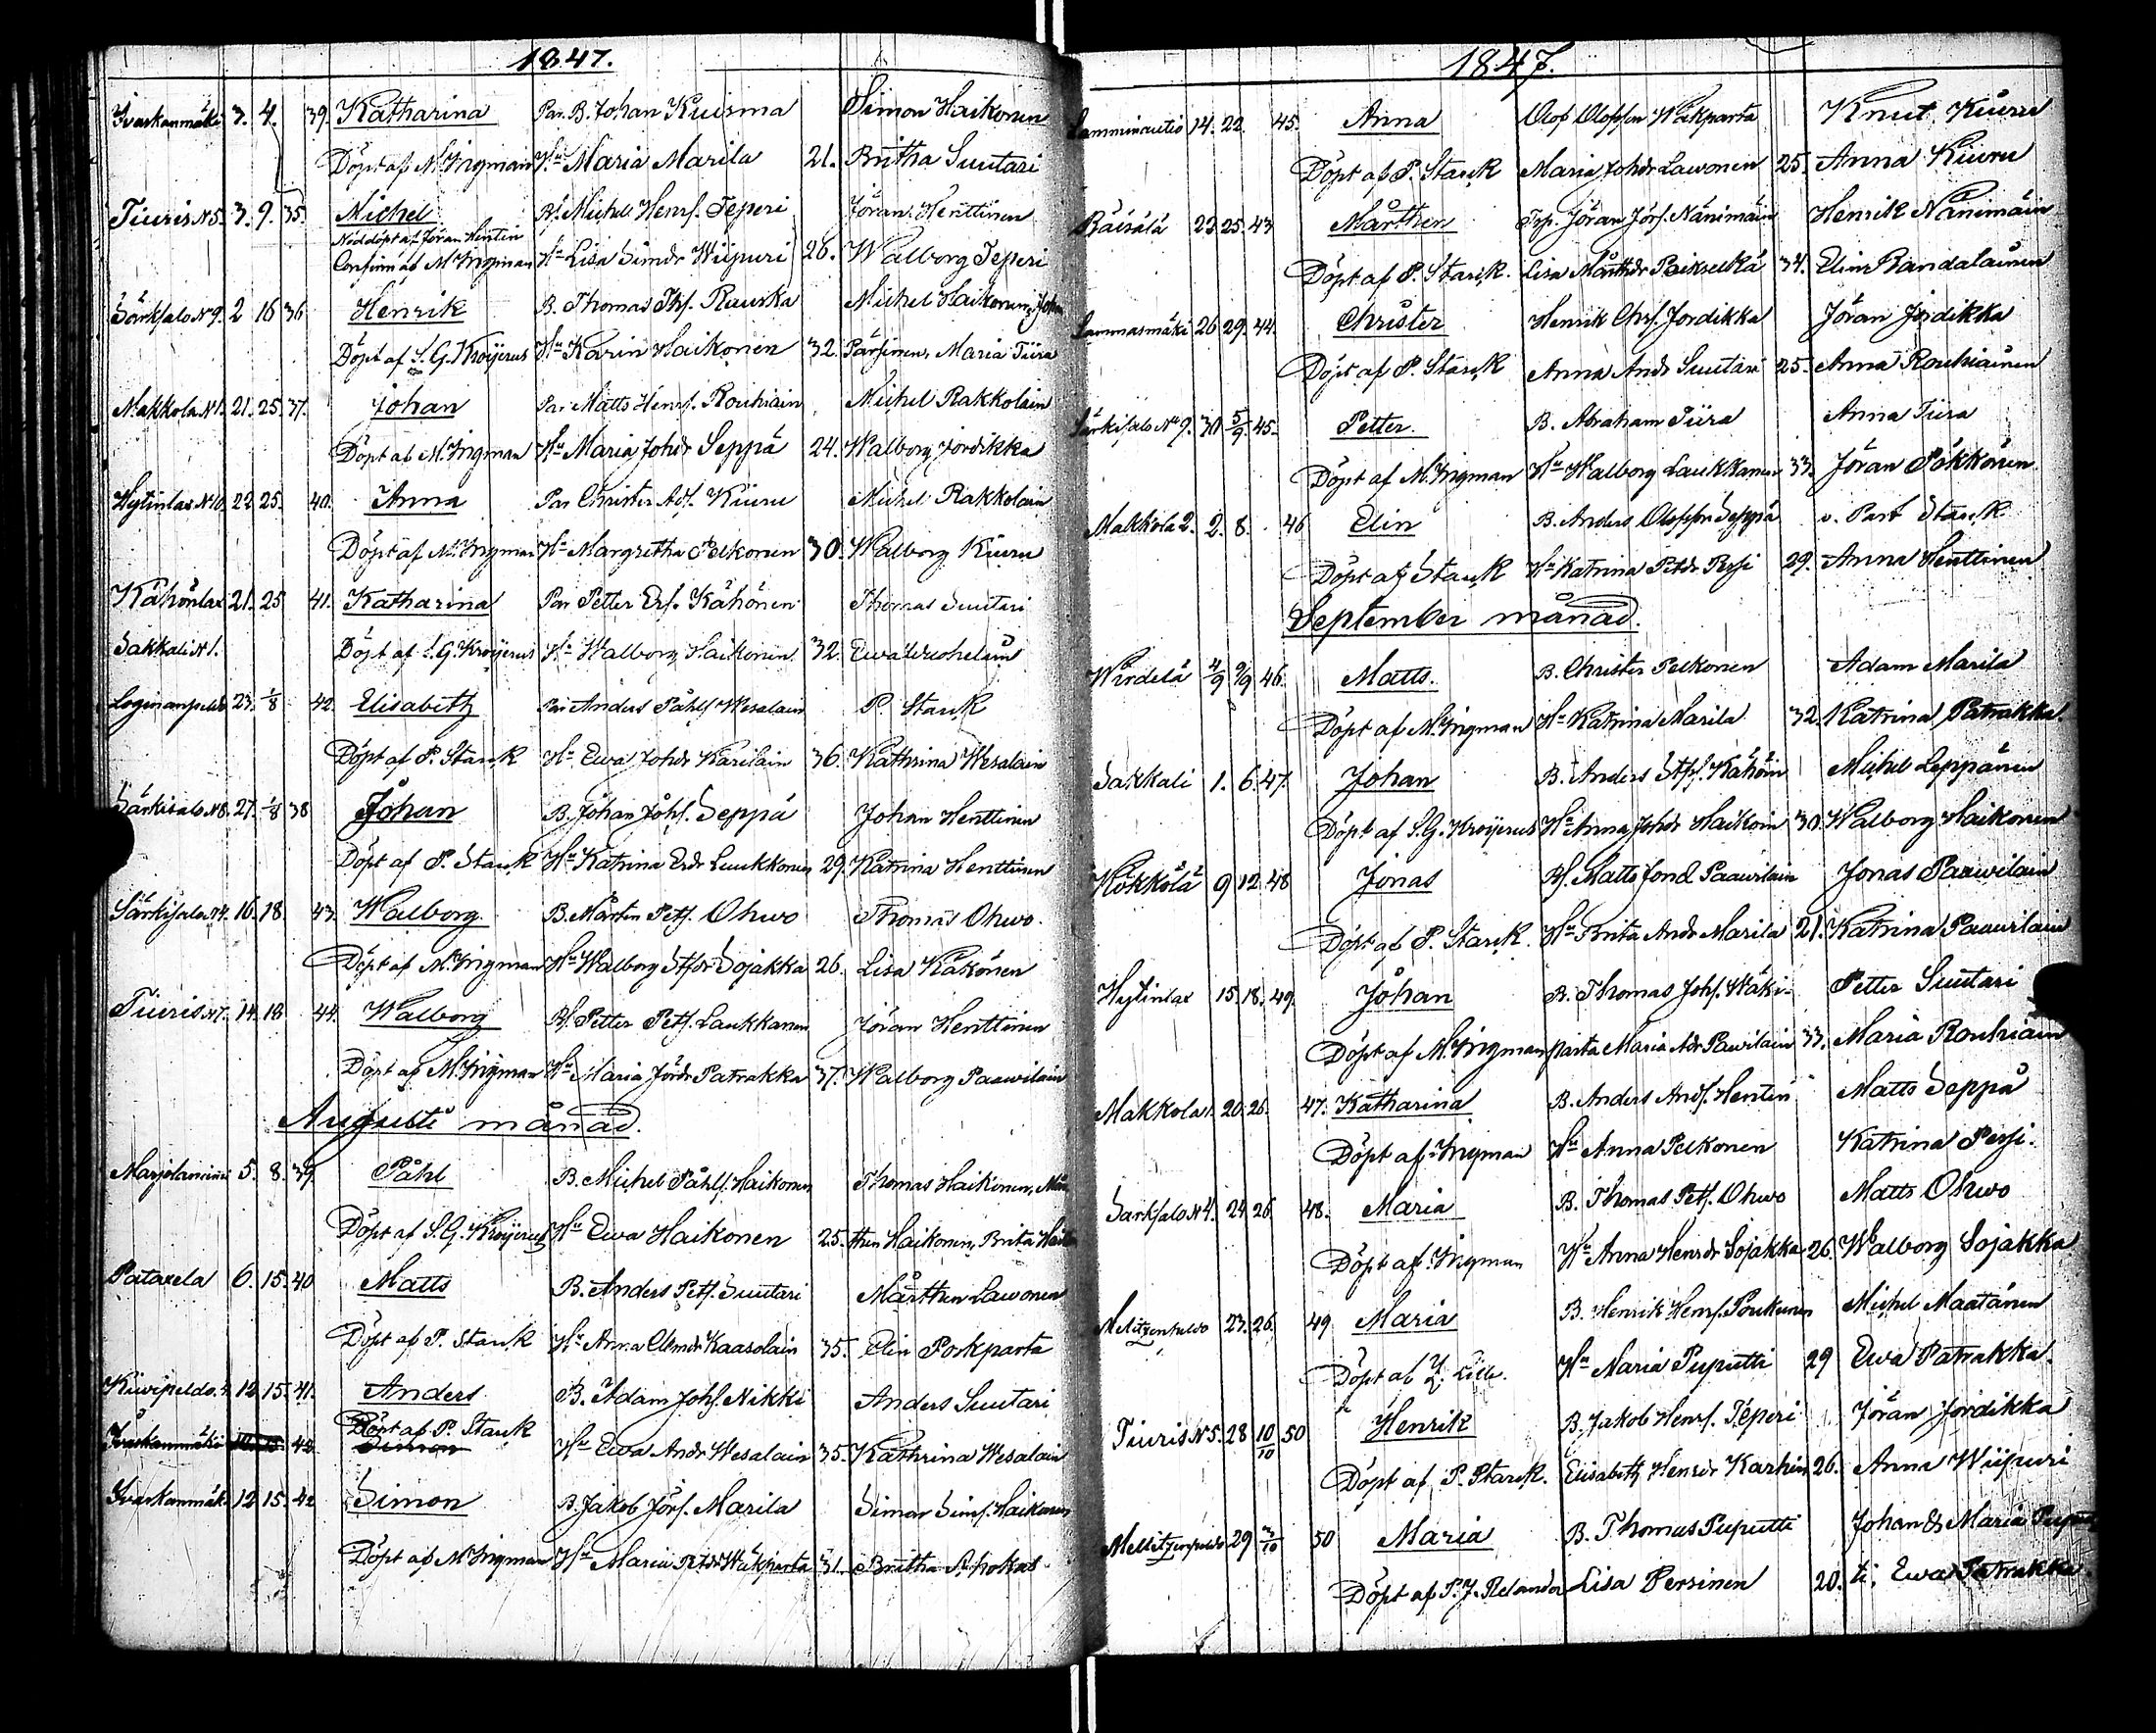 1847.
Ivaskanmäki 3. 4. 39. Katharina Par. B. Johan Kuisma Simon Haikonen
Döpt af M. Ingman Hu Maria Marila 21. Britha Suutari
Tiuris N5. 3. 9. 35. Michel Bf. Michel Henrs. Teperi Jöran Henttinen
Nöddöpt af Jöran Hentin
Confirm af M. Ingman Hu Lisa Simdr Wiipuri 26. Walborg Teperi
Särkisalo N9. 2 16 36 Henrik B. Thomas Ths. Ruuska Michel Haikonen, Johan
Döpt af S. G. Kroijerus Hu Karin Haikonen 32. Pärsinen, Maria Tiira
Makkola N1. 21. 25. 37. Johan Par Matts Henrs. Rouhiain Michel Rakkolain
Döpt af M. Ingman Hu Maria Johdr Seppä 24. Walborg Jordikka
Hytinlax N10. 22 25. 40. Anna Par Christer Ads. Kiuru Michel Rakkolain
Döpt af M. Ingman Hu Margretha Pelkonen 30. Walborg Kiuru
Kähönlax 21. 25 41. Katharina Par Petter Ers. Kähönen Thomas Suutari
Sakkali N1. Döpt af S. G. Kroijerus Hu Walborg Haikonen 32. Ewa Wuohelain
Loginanpeldo 23. 1/8 42. Elisabeth Par Anders Påhls Wesalain P. Starck
Döpt af P. Starck Hu Ewa Johdr Karilain 36. Kathrina Wesalain
Särkisalo N8. 27. 1/8 38 Johan B. Johan Johs. Seppä Johan Henttinen
Döpt af P. Starck Hu Katrina Erdr Luukkonen 29. Katrina Henttinen
Särkisalo N4. 16. 18. 43. Walborg B. Mårten Pets. Ohwo Thomas Ohwo.
Döpt af M. Ingman Hu Walborg Stfdr Sojakka 26. Lisa Kähönen
Tiuris N7. 14. 18 44. Walborg Bf. Petter Pets. Laukkanen Jöran Henttinen
Döpt af M. Ingman Hu Maria Jördr Patrakka 37. Walborg Paawilain
Augusti månad.
Marjolaniemi 5. 8. 39. Påhl B. Michel Påhls. Haikonen Thomas Haikonen, Mår
Döpt af S. G. Kroijerus Hu Ewa Haikonen 25. then Haikonen, Brita Haiko
Pataxela 6. 15. 40 Matts B. Anders Pets. Suutari Mårthen Lawonen
Döpt af P. Starck Hu Anna Clemdr Kaasolain 35. Elin Porkparta
Kiwipeldo. 12. 15. 41. Anders B. Adam Johs. Nikki Anders Suutari
Döpt af P. Starck
Ivaskanmäki 42. Simon Hu Ewa Andr Wesalain 35. Kathrina Wesalain
Ivaskanmäk. 12. 15. 42 Simon B. Jakob Jörs. Marila Simon Sims. Haikonen
Döpt af M Ingman Hu Maria Petdr Wäkiparta 31. Britha Pohokas
1847.
Lamminautio 14. 22. 45. Anna Olof Olofsson Wäkparta Knut Kiuru
Döpt af P. Starck Maria Johdr Lawonen 25. Anna Kiuru
Räisälä 23 25. 43 Mårthen Trp. Jöran Jörs. Nänimäin Henrik Nänimäin
Döpt af P. Starck. Lisa Mårthdr Paikselkä 34. Elin Randalainen
Lammasmäki 26 29. 44. Christer Henrik Chrs. Jordikka Jöran Jordikka
Döpt af P. Starck Anna Andr Suutari 25. Anna Rouhiainen
Särkisalo No 9. 30 5/9 45. Petter. B. Abraham Tiira Anna Tiira
Döpt af M. Ingman Hu Walborg Laukkanen 33. Jöran Pökkönen
Makkola 2. 2. 8. 46 Elin B. Anders Olofson Seppä v. Past Starck
Döpt af Starck Hu Katrina Petdr Persi 29. Anna Henttinen
September månad.
Wirdelä 4/9 9/9 46. Matts. B. Christer Pelkonen Adam Marila
Döpt af M. Ingman Hu Katrina Marila 32 Katrina Patrakka.
Sakkali 1. 6. 47. Johan B. Anders Stfs. Kähöin Michel Leppänen
Döpt af S. G. Kroijerus Hu Anna Johdr Haikoin 30. Walborg Haikonen
Kökkölä 9 12. 48 Jonas Bf. Matts Jonas Paawilain Jonas Paawilain
Döpt af P. Starck. Hu Brita Andr Marila 21. Katrina Paawilain
Hytinlax 15. 18. 49. Johan B. Thomas Johs. Wäki- Petter Suutari
Döpt af M. Ingman parta Maria Adr Pawilain 33. Maria Rouhiain
Makkola 1. 20. 26. 47. Katharina B. Anders Ands. Hentin Matts Seppä
Döpt af Ingman Hu Anna Pelkonen Katrina Persi.
Särkisalo N4. 24 26 48. Maria B. Thomas Pets. Ohwo Matts Ohwo
Döpt af Ingman Hu Anna Henrdr Sojakka 26. Walborg Sojakka
Melitzenpeldo 23. 26. 49 Maria B. Henrik Henrs. Poukunen Michel Maatánen
Döpt af Lille. Hu Maria Puputti 29 Ewa Patrakka.
Tiuris N5. 28 10/10 50 Henrik B. Jakob Henrs. Teperi Jöran Jordikka
Döpt af P. Starck. Elisabeth Henrdr Karhin 26. Anna Wiipuri
Mellitzenpeldo 29 3/10 50 Maria B. Thomas Puputti Johan & Maria Puput
Döpt af P. J. Relander Lisa Persinen 20. ti, Ewa Patrakka.